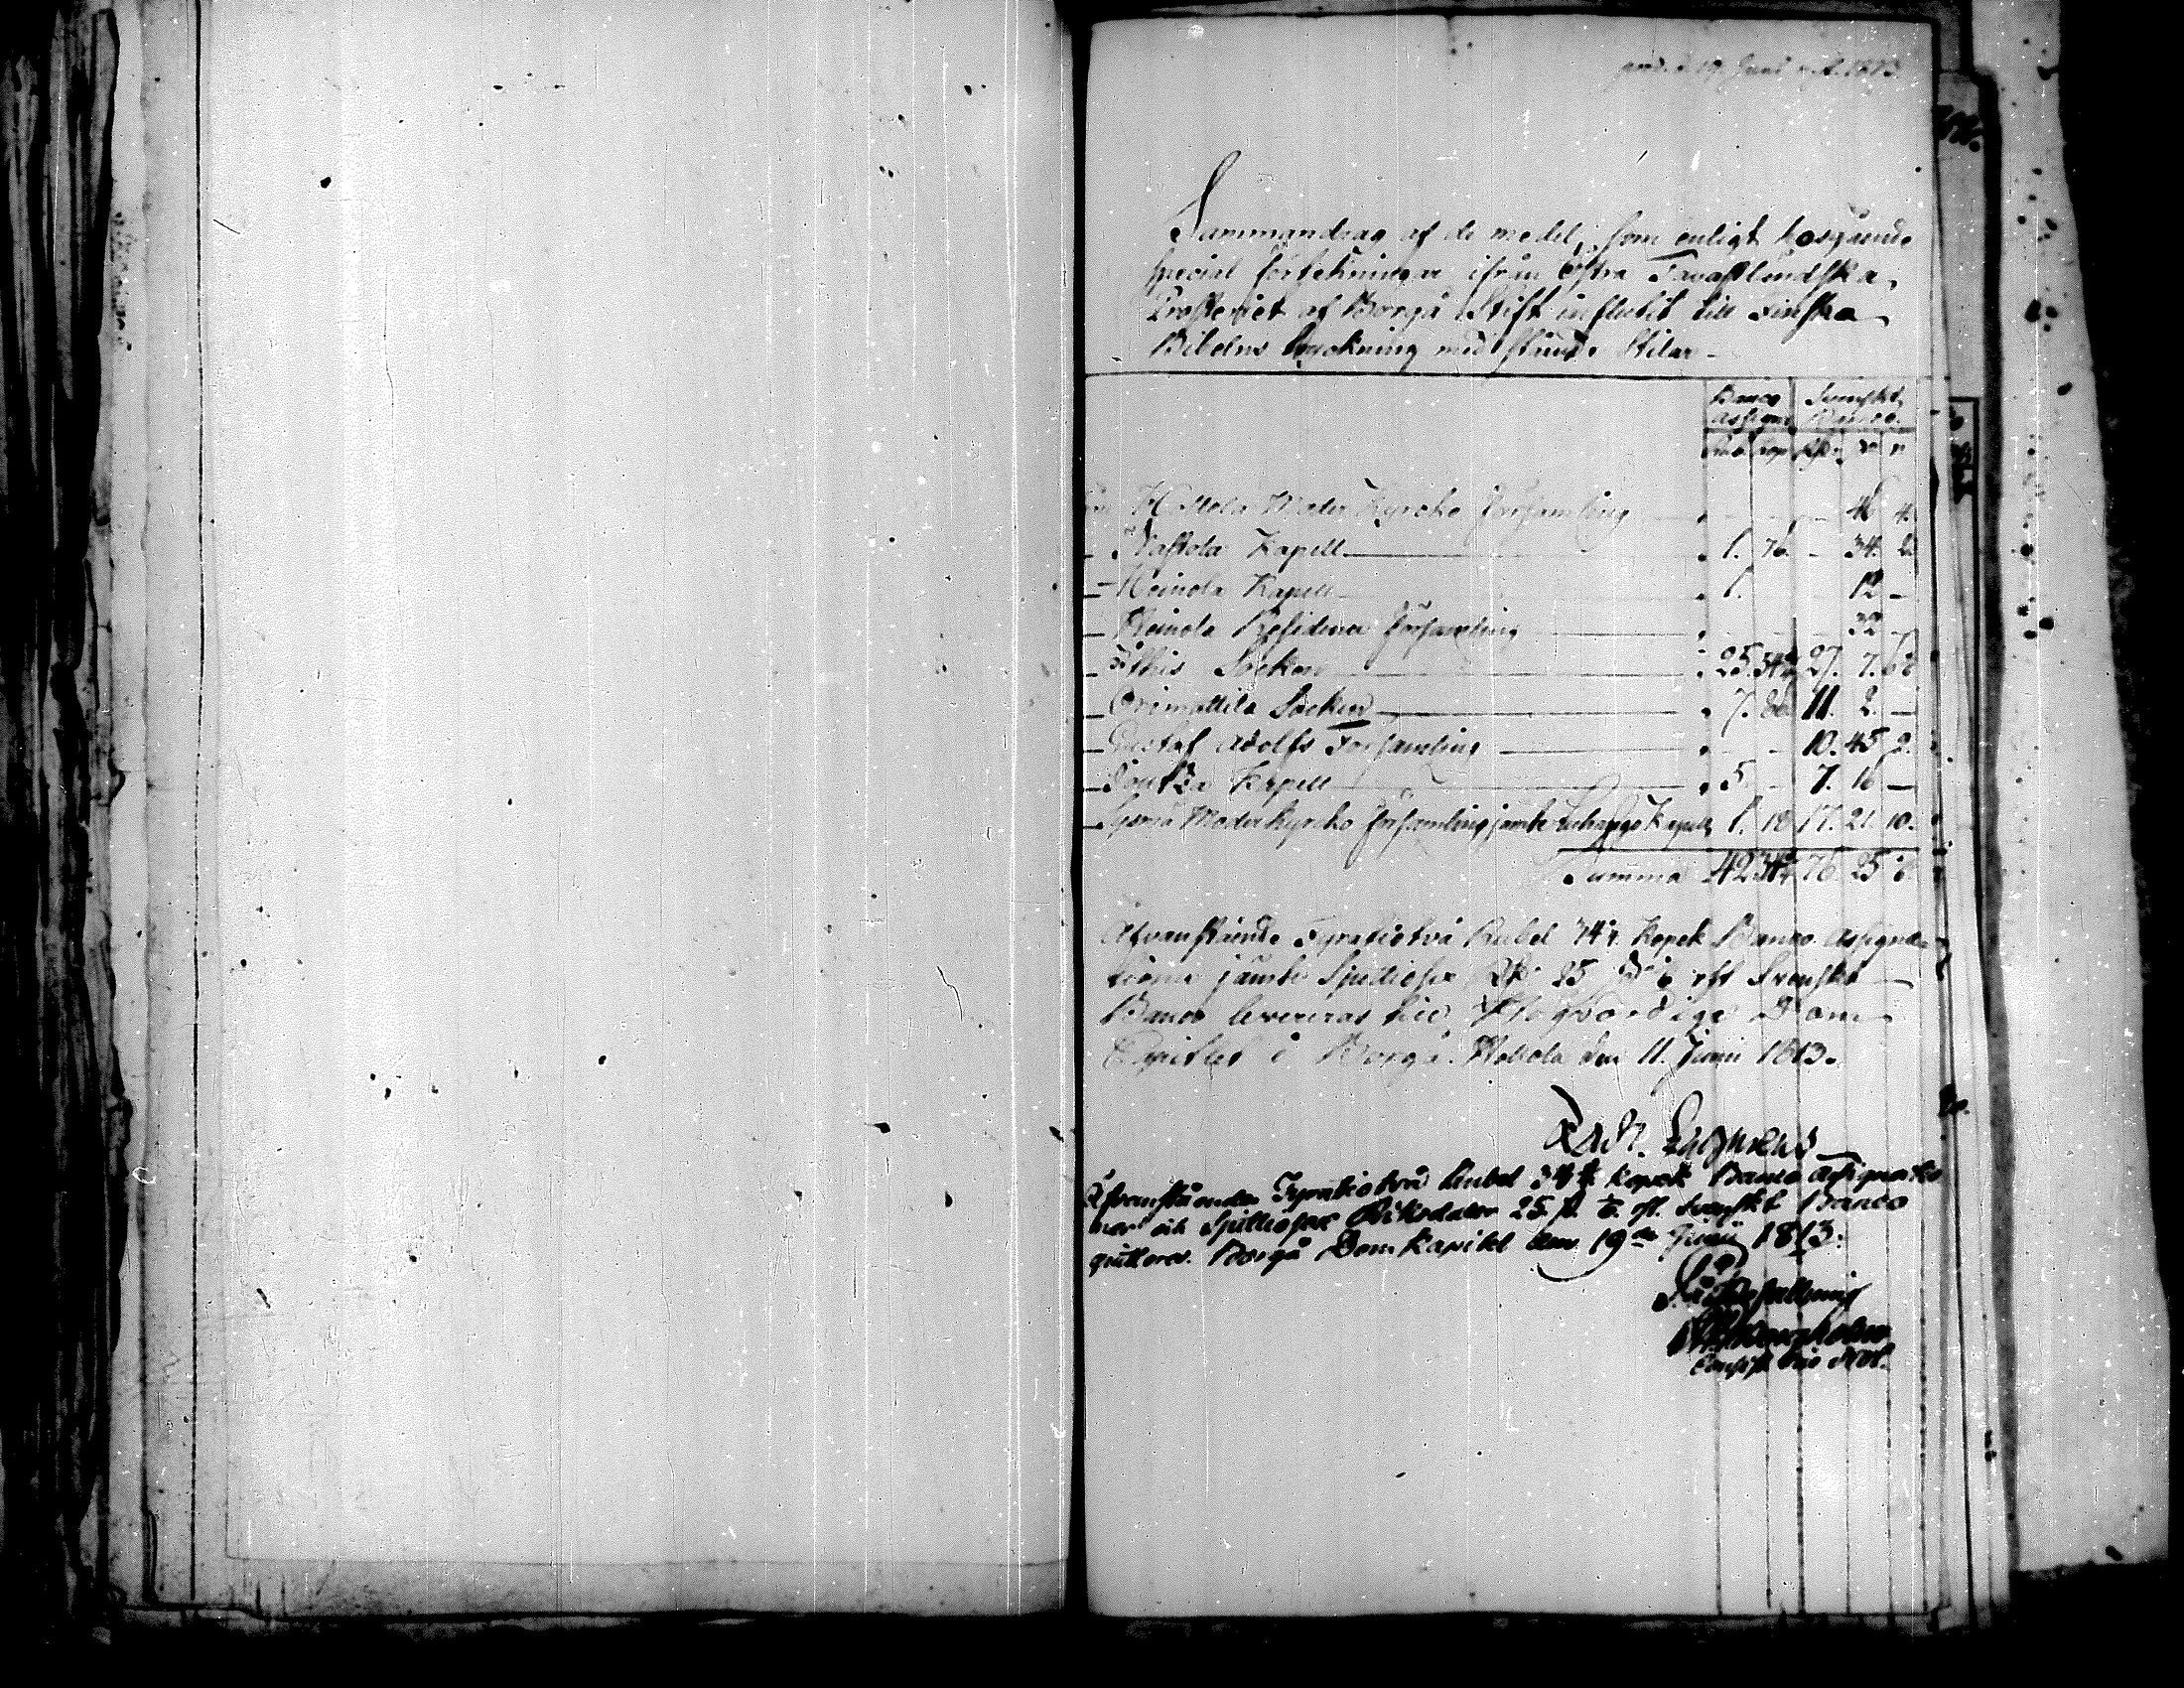 d. 19. Juni 1813.
Sammandrag af de medel, som enligt hosgående
special förtekningar ifrån Östra Tavastländska
Prosteriet af Borgå Stift influtit till Finska
Bibelns tryckning med stående Stilar.
Banco Svenskt
Assign. Banco.
Rub. Kop. Rdr.
Hollola Moder Kyrcko församling 4.
Nastola Kapell 1. 76. 34. 2
Heinola Kapell 1. 12 —
Heinola Residence församling 32 —
Ithis Socken 25. 27. 7.
Orimattila Socken 7. 11. 2. —
Gustaf Adolfs Församling 10. 45 2.
Kapell 5 7. 16 —
Sysmä Moder Kyrcko församling jämte Kapell 1. 18 17. 21. 10.
Summa 42 34¼ 76. 25 6
Ofvanstående Fyratiotvå Rubel 34¼ Kopek Banco Assigna-
tioner jämte Sjuttiosex Rdr 25 s 6 rst Svenskt
Banco levereras till Högvördige Dom
Capitlet i Borgå. Hollola den 11. Junii 1813.
Ofvanstående Fyratiotvå Rubel 34¼ Kopek Banco Assignatio
ner och Sjuttiosex Riksdaler 25 s. 6. rst. Svenskt Banco
quitteras. Borgå Dom Kapitel den 19de Junii 1813.
På Befallning
Not.